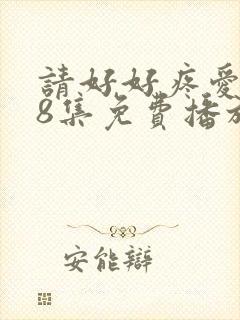 請好好疼愛
8集免費播放
安能辯